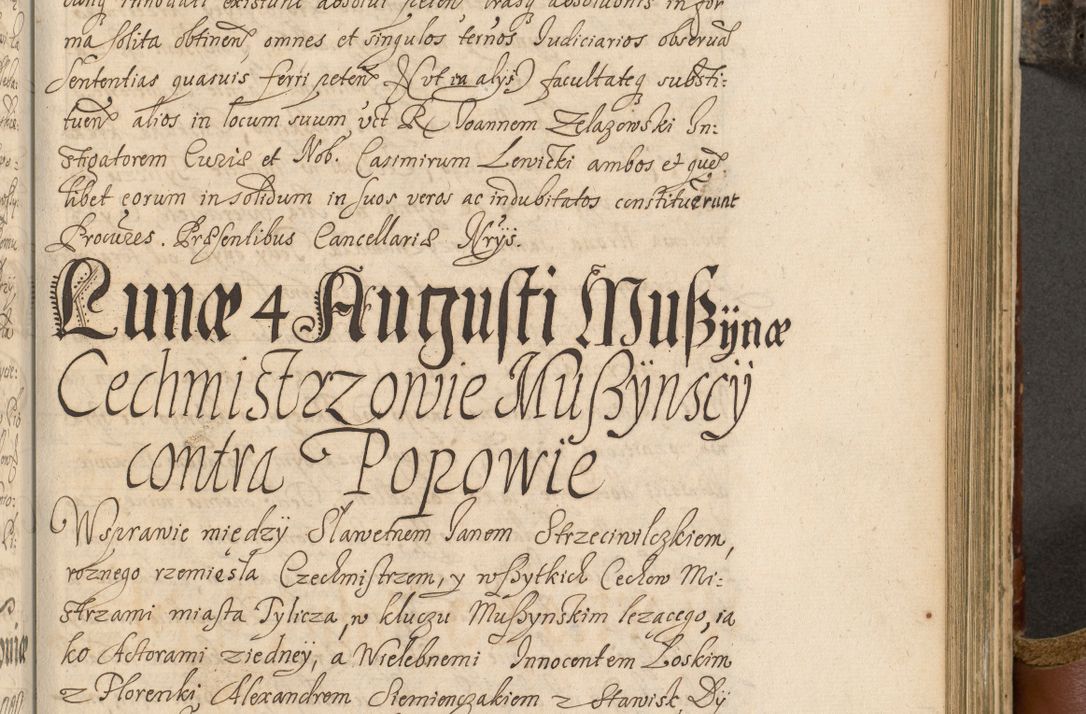 cunq innodati existunt absolvi peten crasq absolutionis in for
ma solita obtinen, omnes et singulos ternos Judiciarios observan
Sententias quasuis ferri peten (vt in alys) facultateq substi:
tuen alios in locum suum vct R Joannem Zelazowski In:
stigatorem Curiæ et Nob. Casimirum Lewicki ambos et quem
libet eorum in solidum in suos veros ac indubitatos constituerunt
Procures. Præsentibus Cancellariæ Nrÿs.
Lunæ 4 Augusti Mußÿnæ
Cechmistrzowie Mußÿnscÿ
contra Popowïe
Wsprawie między Sławetnem Janem Strzeciwilczkiem,
roznego rzemięsła Czechmistrzem, y wßytkich Cechow Mi:
strzami miasta Tylicza, w kluczu Mußynskim lezącego, ia
ko Actorami ziedneÿ, a Wielebnemi Innocentem Łoskim
z Florenki, Alexandrem Siemienczakiem z Stawisk, Dÿ